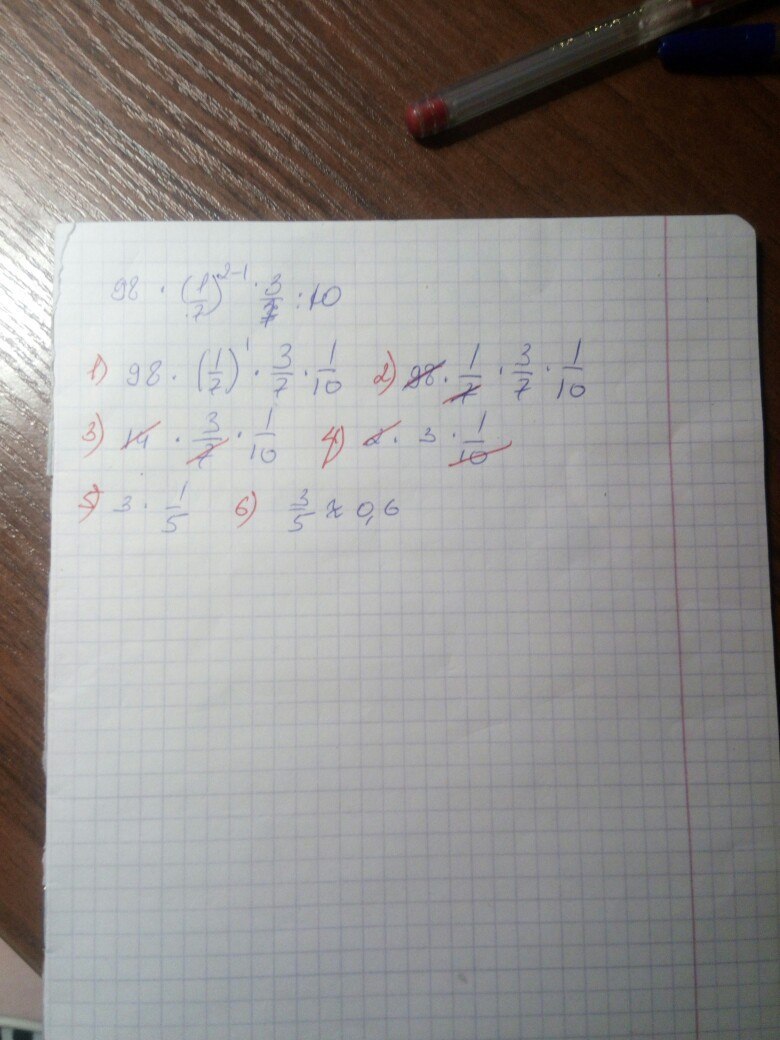 98 · (1/7)^2-1 · 3/7 : 10
1) 98 · (1/7)^1 · 3/7 · 1/10 2) 98 · 1/7 · 3/7 · 1/10
3) 14 · 3/7 · 1/10 4) 2 · 3 · 1/10
5) 3 · 1/5 6) 3/5 ≈ 0,6